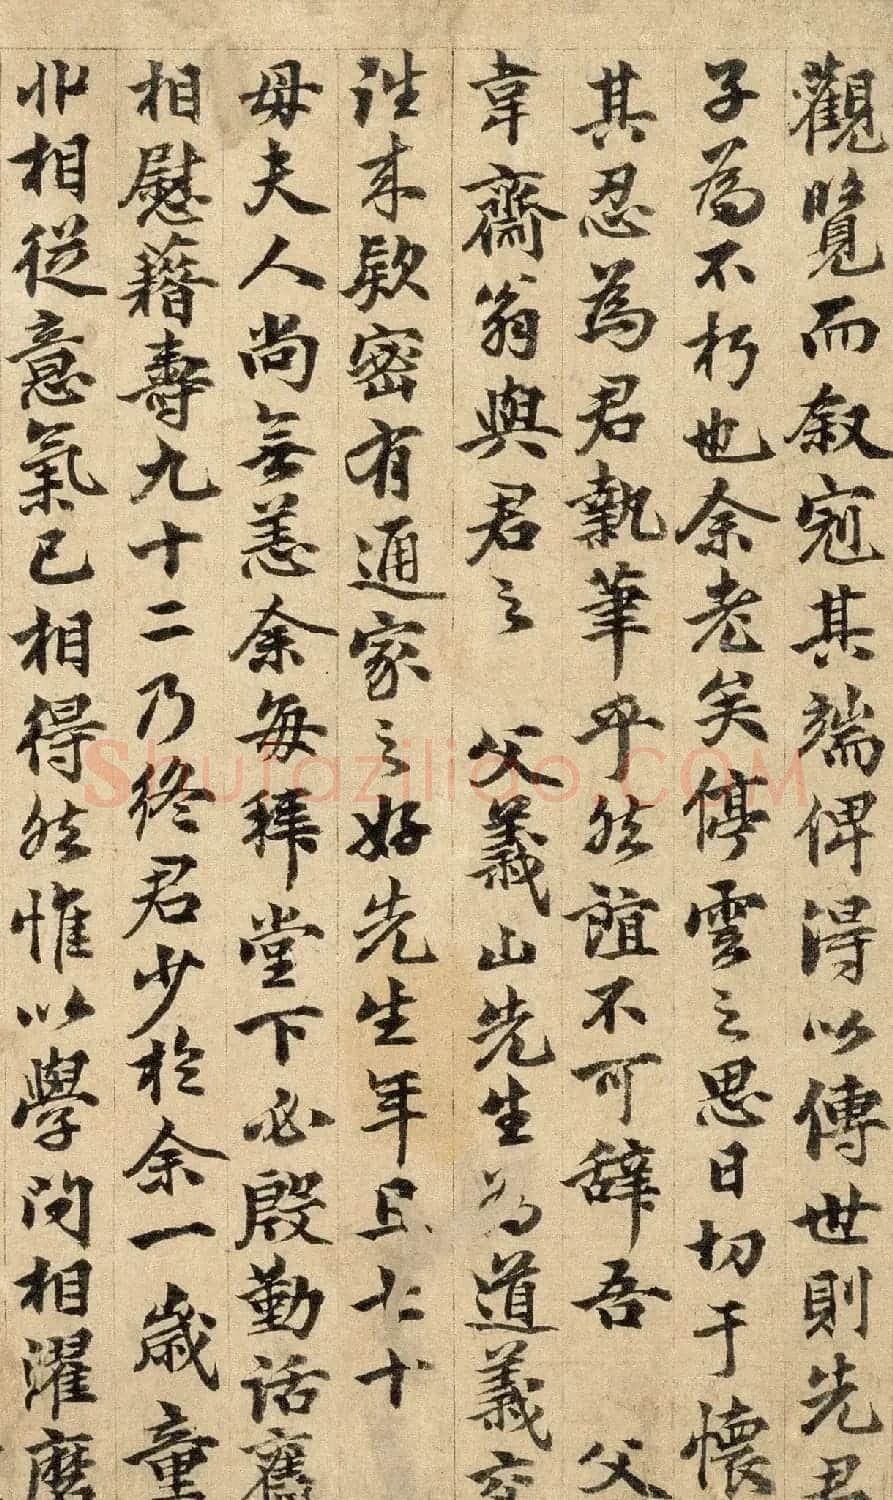 觀覽而叙冠其端俾得以傳世則先君
子為不朽也余老矣停雲之思日切于懷
其忍為君執筆乎然誼不可辞吾 父
韋齋翁與君之 父義山先生為道義交
往来欵密有通家之好先生年且七十
母夫人尚無恙余每拜堂下必殷勤話舊
相慰藉壽九十二乃終君少於余一歳童
丱相從意氣已相得然惟以學問相濯磨
Shufaziliao.COM